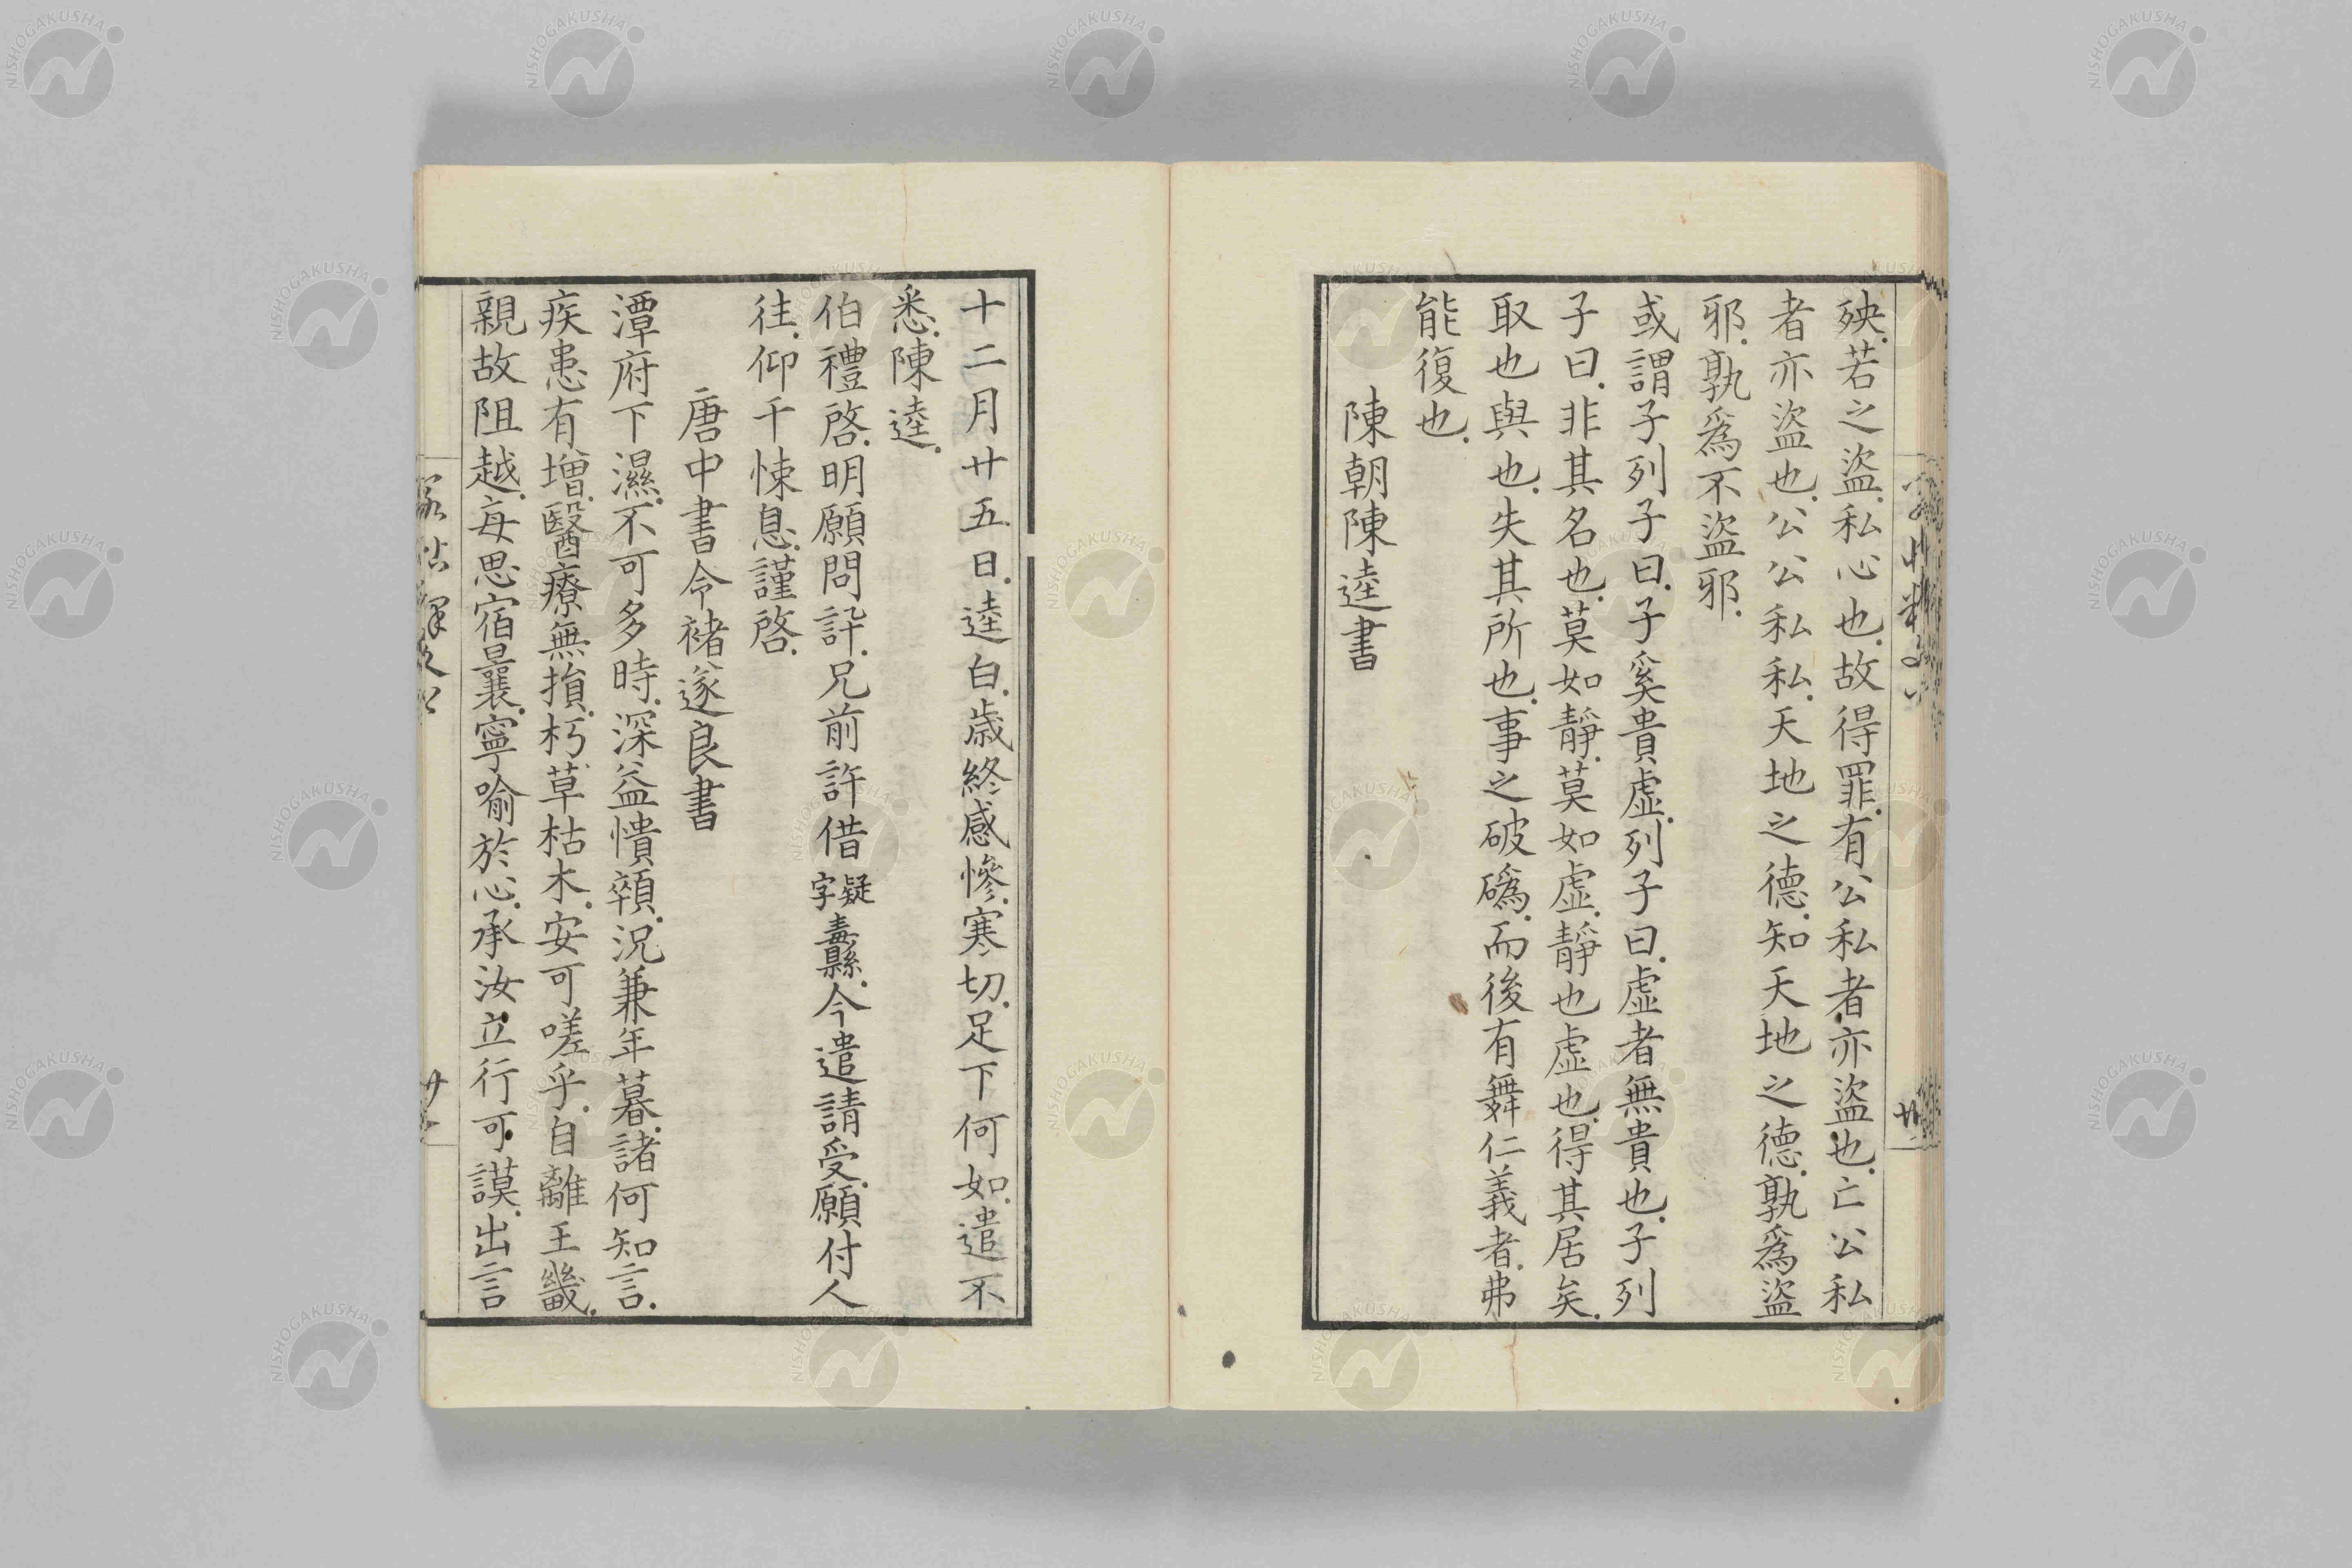 殃.若之盜.私心也.故得罪.有公私者亦盜也.亡公私
者亦盜也.公公私私.天地之德.知天地之德.孰爲盜
邪.孰爲不盜邪.
或謂子列子曰.子奚貴虛.列子曰.虛者無貴也.子列
子曰.非其名也.莫如靜.莫如虛.靜也虛也.得其居矣.
取也與也.失其所也.事之破䃣.而後有舞仁義者.弗
能復也.
陳朝陳逵書
十二月廿五日.逵白.歲終感慘.寒切.足下何如.遣不
悉.陳逵.
伯禮啓.明願問訃.兄前許借疑字纛縣.今遣請受.願付人
往.仰千悚息.謹啓.
唐中書令褚遂良書
潭府下濕.不可多時.深益憒顇.況兼年暮.諸何知言.
疾患有增.醫療無損.朽草枯木.安可嗟乎.自離王畿.
親故阻越.每思宿曩.寧喻於心.承汝立行可謨.出言
NISHOGAKUSHA